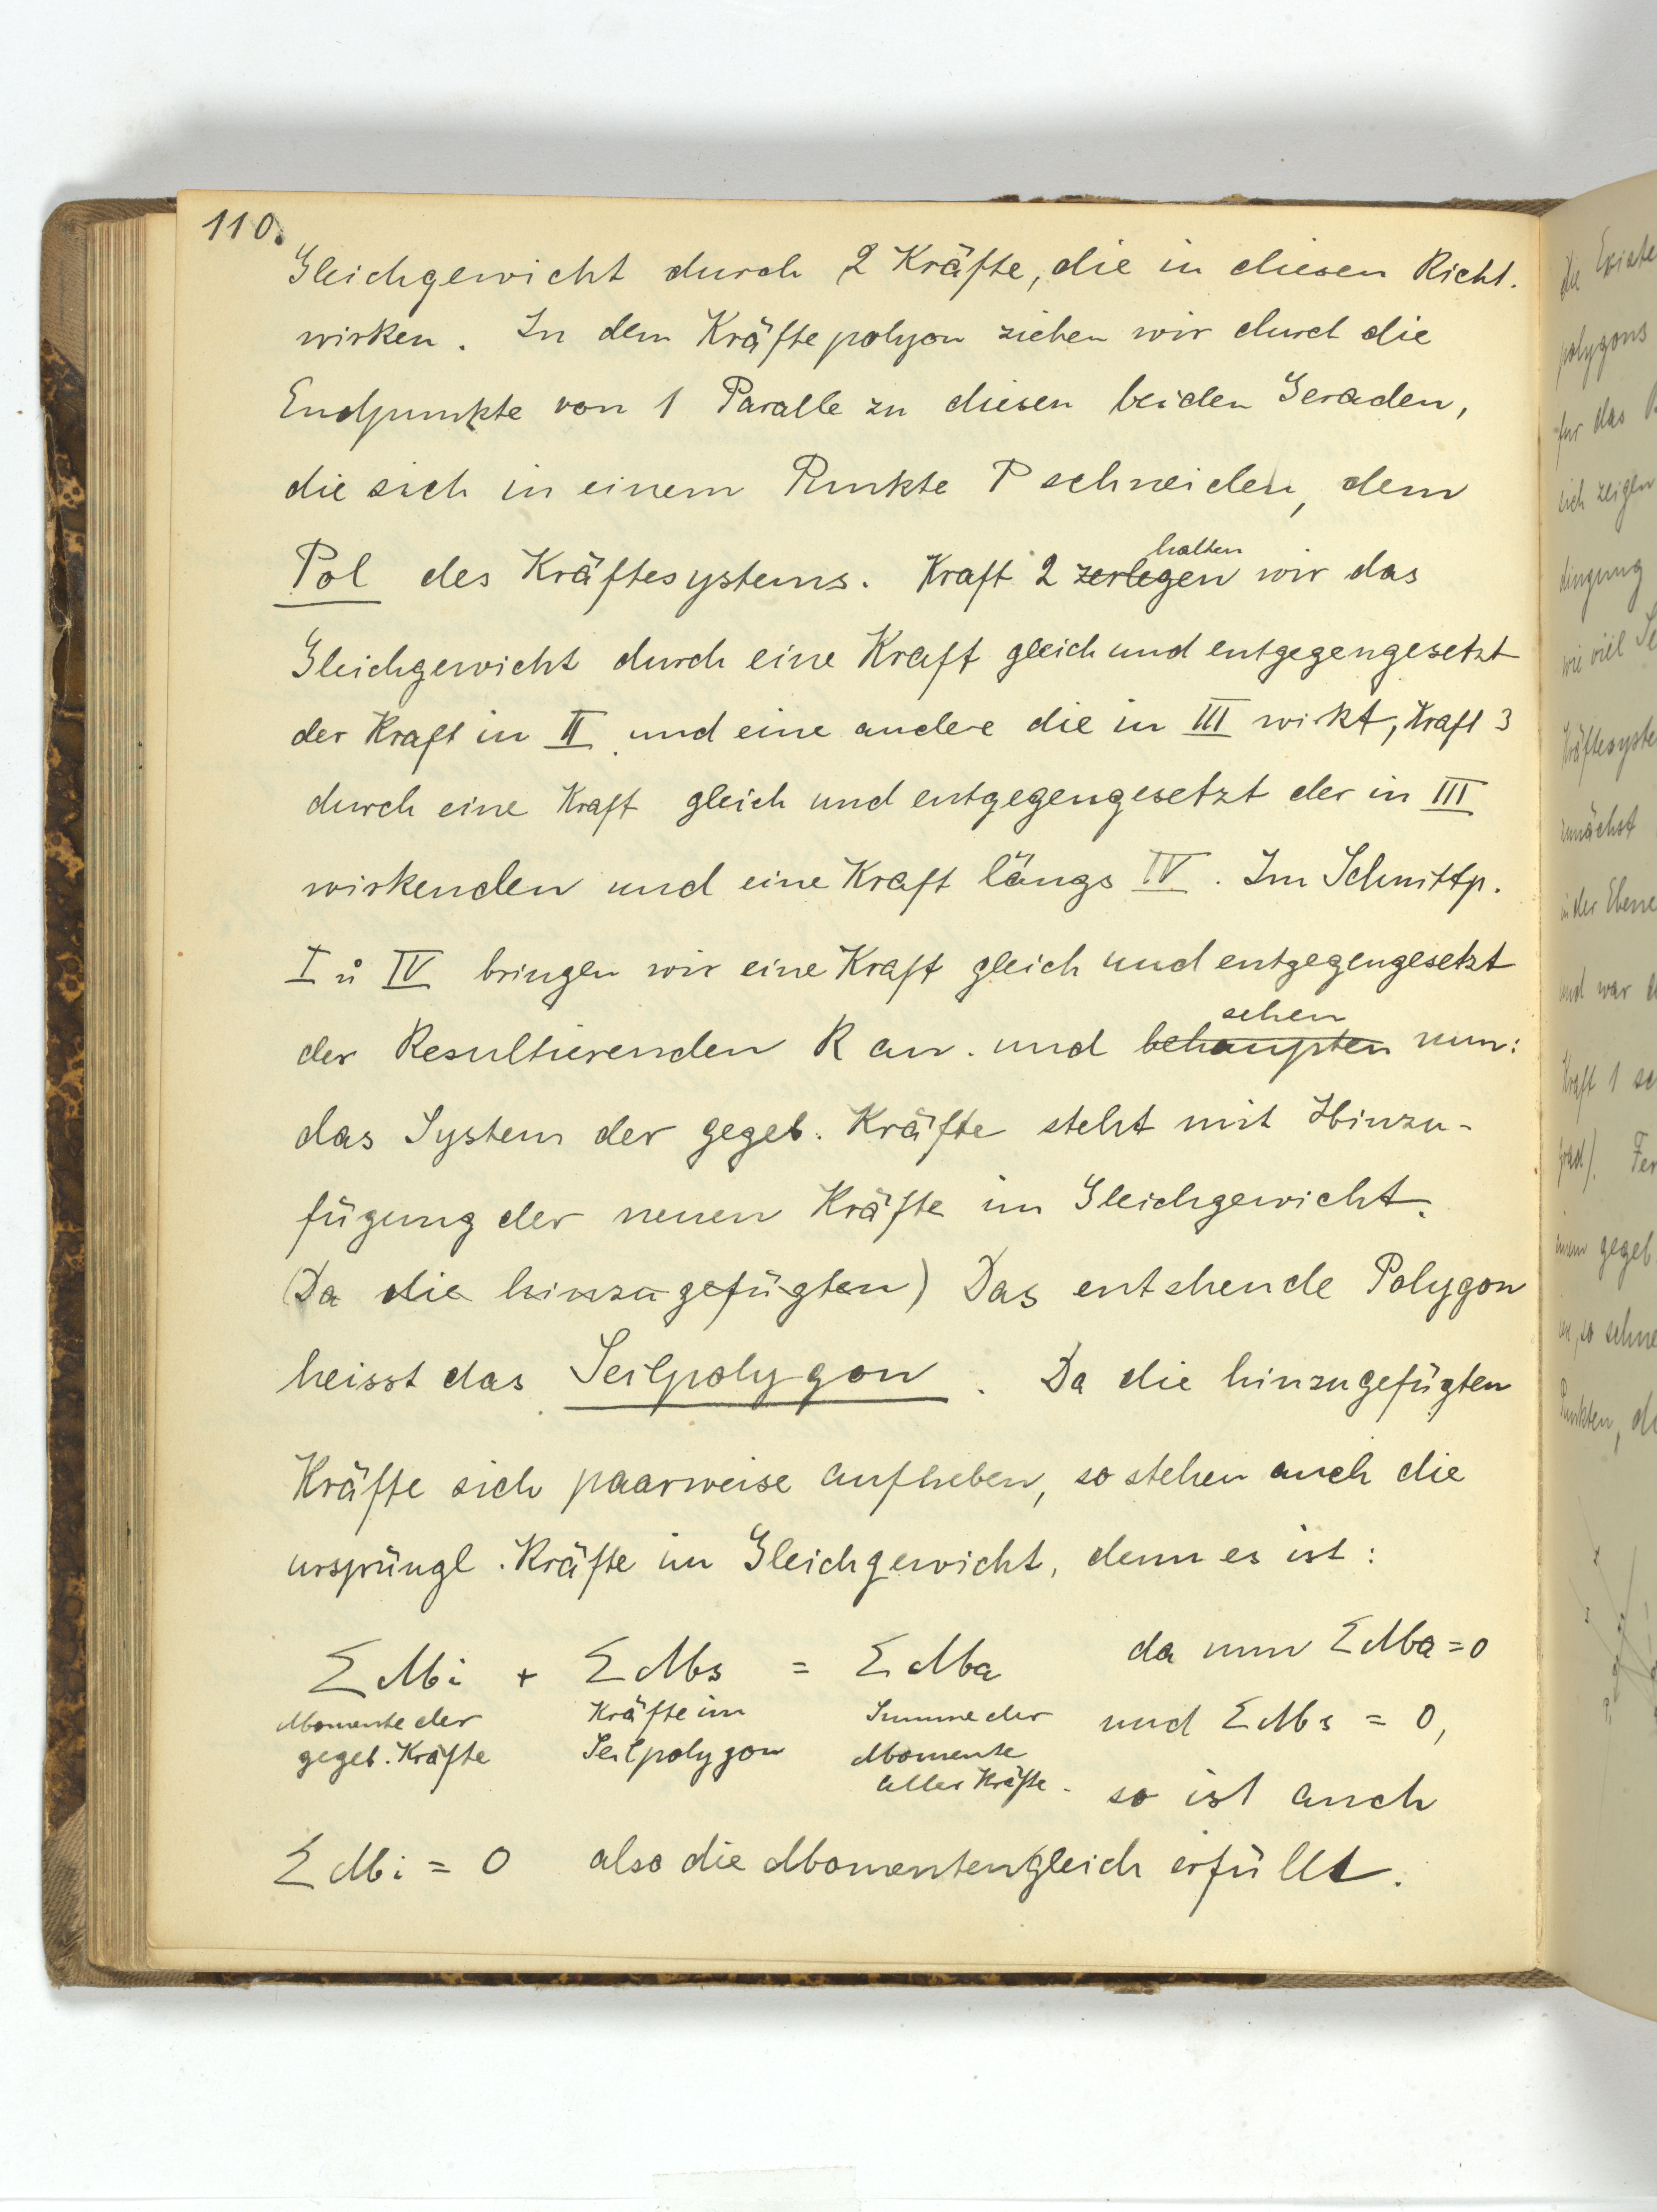 110.
Gleichgewicht durch 2 Kräfte, die in diesen Richt.
wirken. In dem Kräftepolyon ziehen wir durch die
Endpunkte von 1 Paralle zu diesen beiden Geraden,
die sich in einem Punkte P schneiden, dem
Pol des Kräftesystems. Kraft 2 zerlegen halten wir das
Gleichgewicht durch eine Kraft gleich und entgegengesetzt
der Kraft in II und eine andere die in III wirkt, Kraft 3
durch eine Kraft gleich und entgegengesetzt der in III
wirkenden und eine Kraft längs IV. Im Schnittp.
I u IV bringen wir eine Kraft gleich und entgegengesetzt
der Resultierenden R an. und behaupten sehen nun:
das System der gegeb. Kräfte steht mit Hinzu-
fügung der neuen Kräfte im Gleichgewicht.
(Da die hinzugefügten) Das entshende Polygon
heisst das Seilpolygon. Da die hinzugefügten
Kräfte sich paarweise aufheben, so stehen auch die
ursprüngl. Kräfte im Gleichgewicht, denn es ist:
Σ Mi + Σ Ms = Σ Ma da nun Σ Ma = 0
Momente der Kräfte im Summe der und Σ Ms = 0,
gegeb. Kräfte Seilpolygon Momente
aller Kräfte. so ist auch
Σ Mi = 0 also die Momentengleich erfüllt.
Die Existe
polygons
für das
sich zeigen
dingung
wie viel Se
Kräftesyste
zunächst
in der Ebene
und war
Kraft 1 sc
grad). Fer
gegeb
so schne
Punkten, di